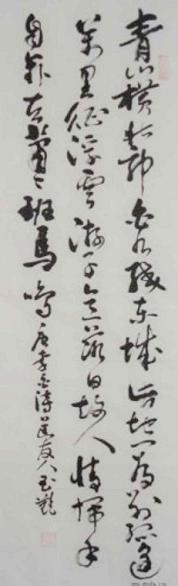 青山横北郭白水绕东城此地一为别孤蓬
万里征浮云游子意落日故人情挥手
自兹去萧萧班马鸣 唐李白诗送友人 玉艷